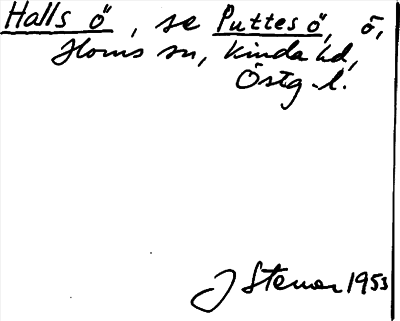 Halls ö, se Puttes ö, ö,
Horns sn, Kinda hd,
Östg. l.
J Stenor 1953